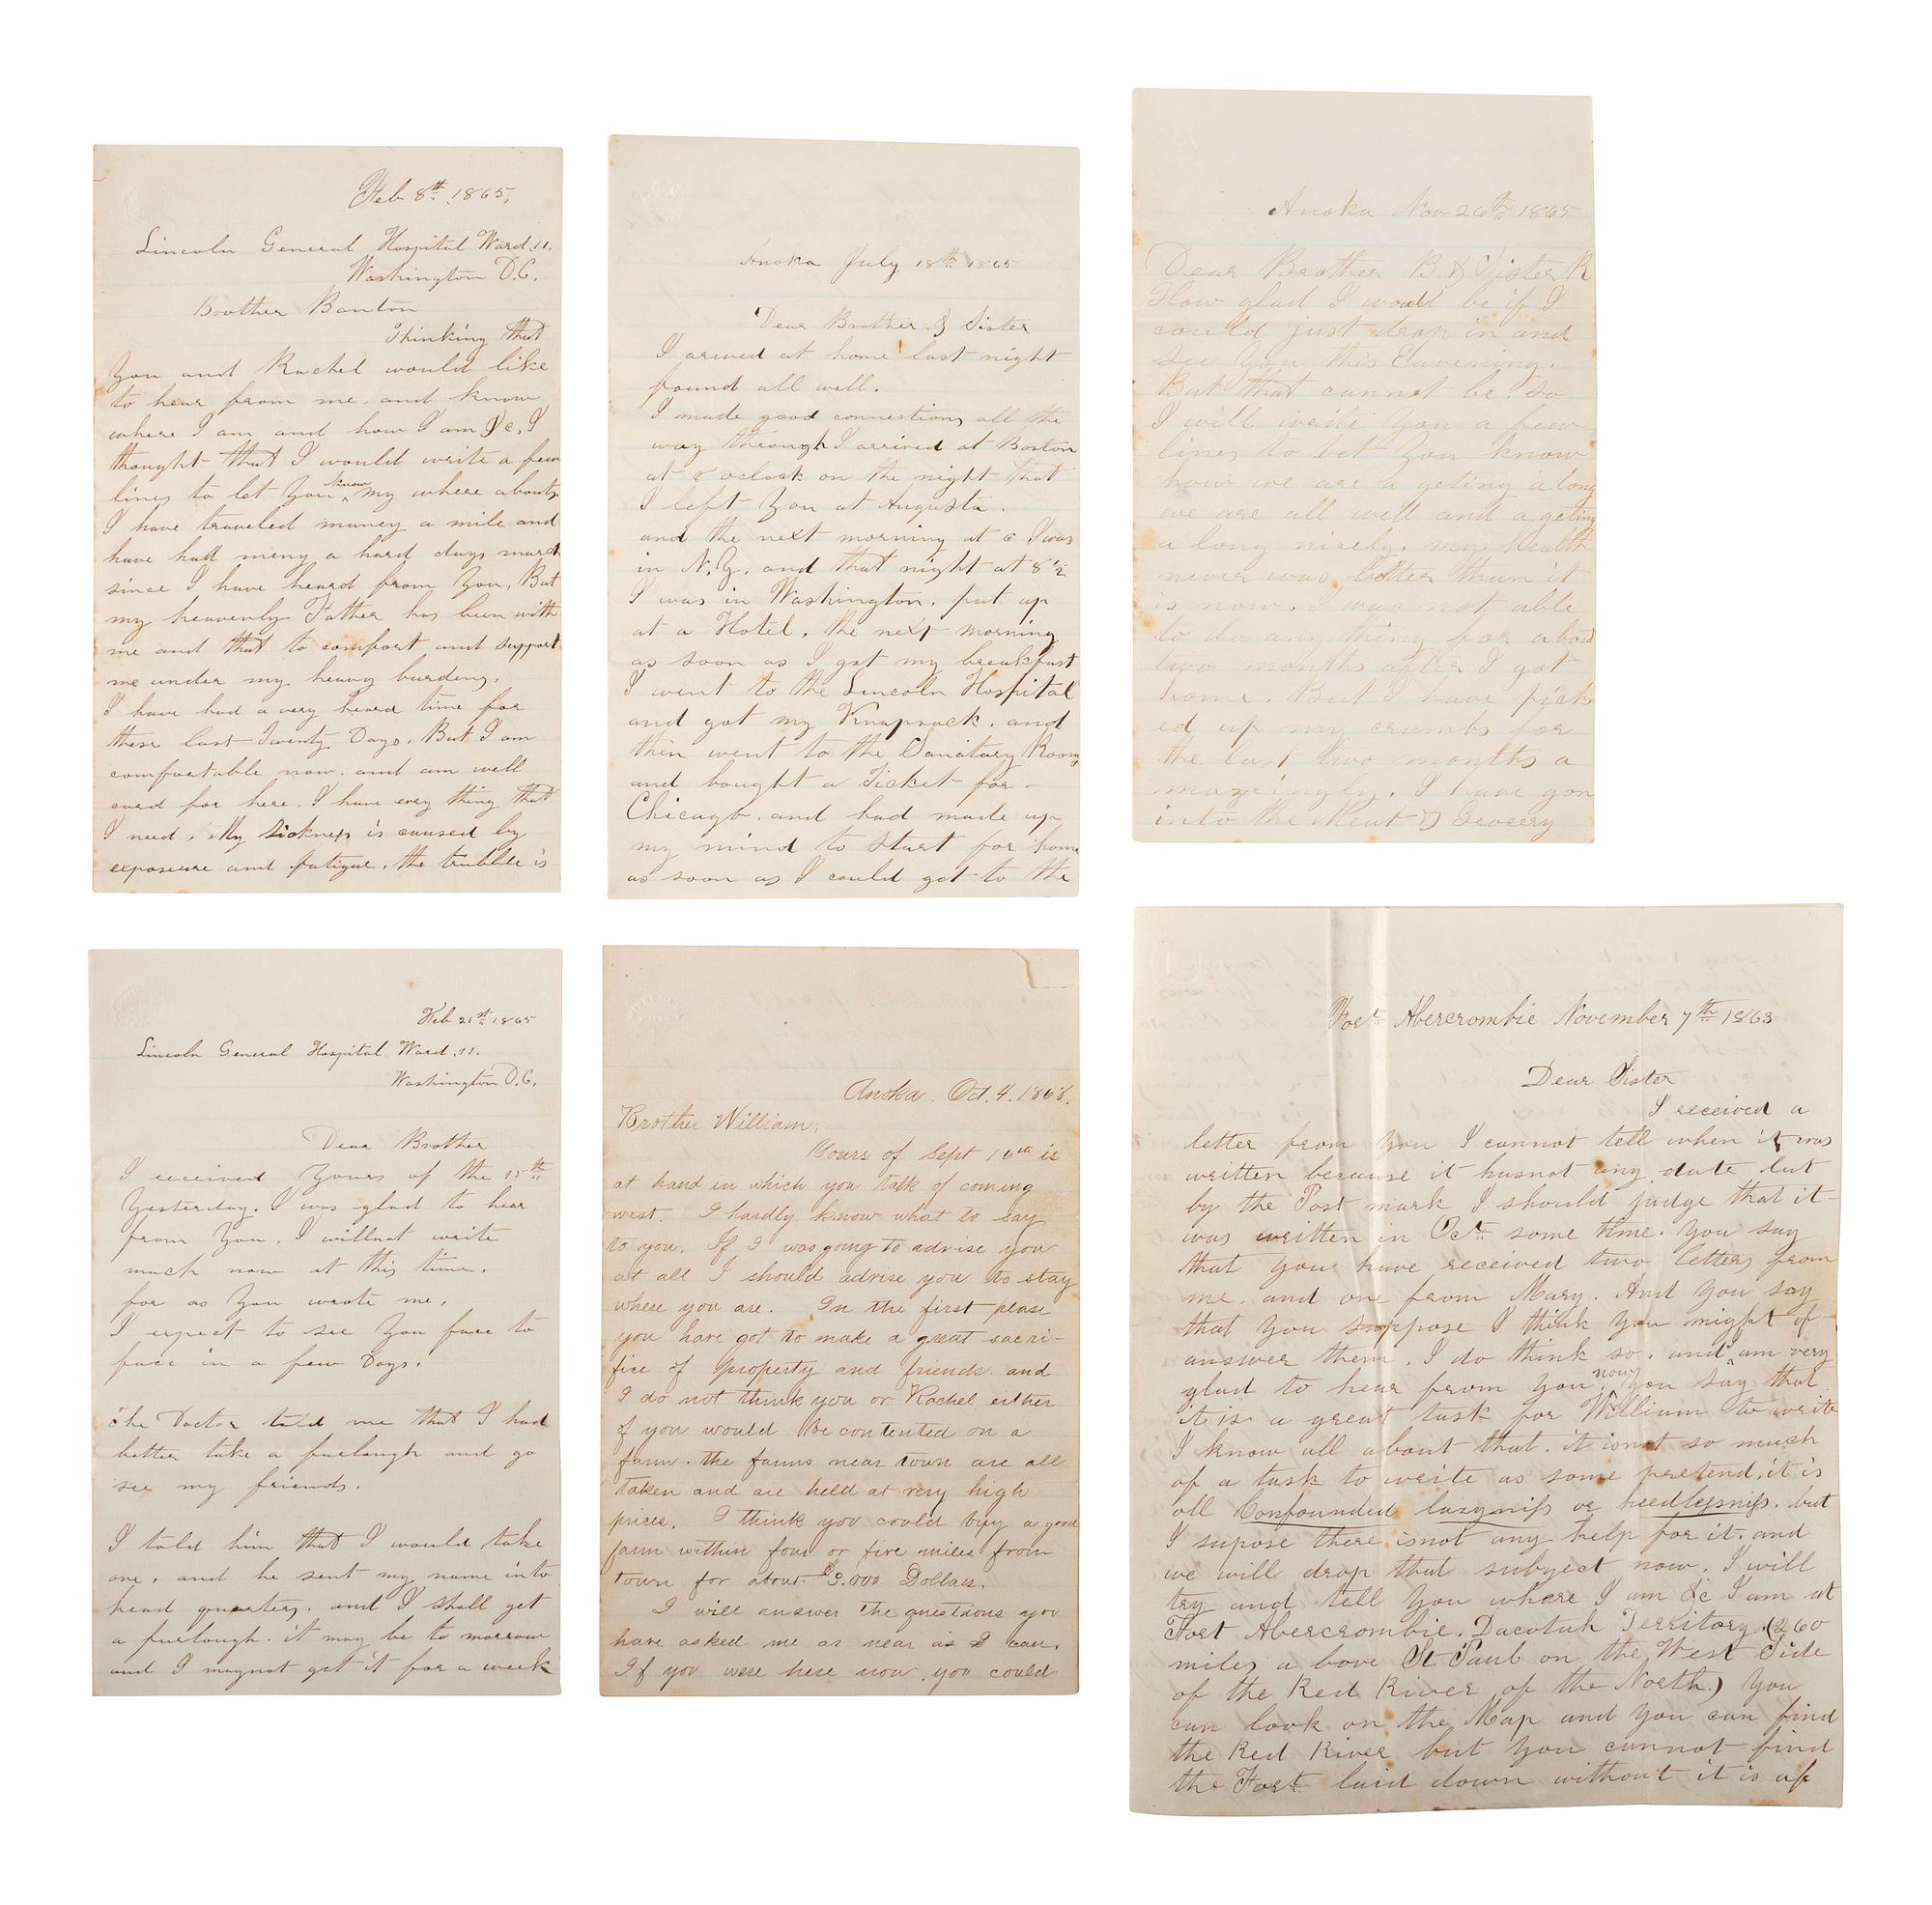 Feb 8th 1865,
Lincoln General Hospital Ward.11.
Washington D.C.
Brother Banton
Thinking that
You and Rachel would like
to hear from me. and know
where I am and how I am &c, I
thought that I would write a few
lines to let You know my where abouts,
I have traveled maney a mile and
have had meny a hard days march
since I have heard from You, But
my heavenly Father has been with
me and that to comfort and support
me under my heavy burdens,
I have had a very heard time for
these last Twenty Days. But I am
comfortable now. and am well
card for here. I have evry thing that
I need, My sickness is caused by
exposure and fatigue, the trubble is
Anoka July 18th 1865
Dear Brother & Sister
I arived at home last night
found all well.
I made good connections all the
way through I arrived at Boston
at 8 oclock on the night that
I left You at Augusta.
and the next morning at 6 I was
in N.Y. and that night at 8 1/2
I was in Washington, put up
at a Hotel, the next morning
as soon as I got my breakfast
I went to the Lincoln Hospital
and got my Knapsack. and
then went to the Sanitary Rooms
and bought a Ticket for
Chicago. and had made up
my mind to start for home
as soon as I could get to the
Anoka Nov 26th 1865
Dear Brother B. & Sister R
How glad I would be if I
could just drop in and
see You this Eavening.
But that cannot be. so
I will write You a few
lines to let You know
how we are a geting along
we are all well and a geting
a long nicely. my health
never was better than it
is now. I was not able
to do any thing for about
two months after I got
home. But I have pick
ed up my crumbs for
the last two months a
mazeingly. I have gon
into the Meat & Grocery
Feb 21st 1865
Lincoln General Hospital Ward.11.
Washington D.C.
Dear Brother
I received Yours of the 15th
Yesterday. I was glad to hear
from You, I willnot write
much now at this time.
for as You wrote me,
I expect to see You face to
face in a few Days.
The Doctor told me that I had
better take a furlough and go
see my friends.
I told him that I would take
one, and he sent my name into
head quarters. and I shall get
a furlough. it may be to morrow
and I maynot get it for a week
Anoka. Oct. 4. 1868.
Brother William;
Yours of Sept 16th is
at hand in which you talk of coming
west. I hardly know what to say
to you. If I was going to advise you
at all I should advise you to stay
where you are. In the first please
you have got to make a great sacri-
fice of property and friends. and
I do not think you or Rachel either
of you would be contented on a
farm. the farms near town are all
taken and are held at very high
prices. I think you could buy a good
farm within four or five miles from
town for about $3.000 Dollars.
I will answer the questions you
have asked me as near as I can.
If you were here now, you could
Fort Abercrombie November 7th 1863
Dear Sister
I received a
letter from You I cannot tell when it was
written because it hasnot any date but
by the Post mark I should judge that it
was written in Oct. some time. You say
that You have received two letters from
me. and one from Mary. And You say
that You suppose I think You might of
answer them. I do think so. and am very
glad to hear from You now. You say that
it is a great task for William to write
I know all about that. it isnot so much
of a task to write as some pretend, it is
all Confounded lazyniss or heedlessniss. but
I supose there isnot any help for it. and
we will drop that subject now. I will
try and tell You where I am &c I am at
Fort Abercrombie. Dacotah Territory. (260
miles a bove St Paul on the West Side
of the Red River of the North.) You
can look on the Map and You can find
the Red River but You cannot find
the Fort laid down without it is of